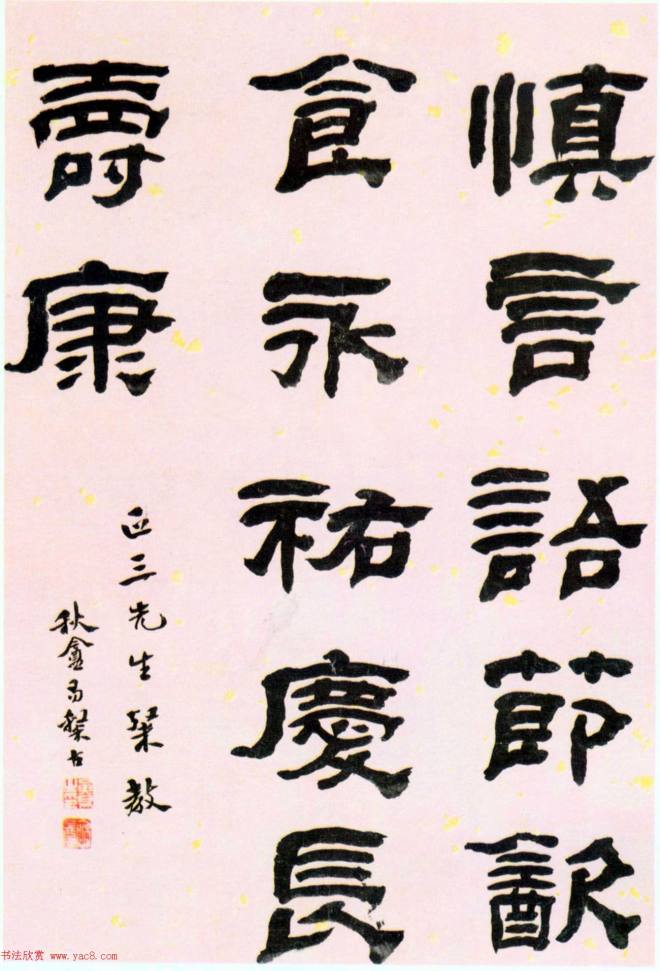 慎言語節飲
食永祐慶長
壽康
正三先生粲教
秋盦易槃古
书法欣赏 www.yac8.com